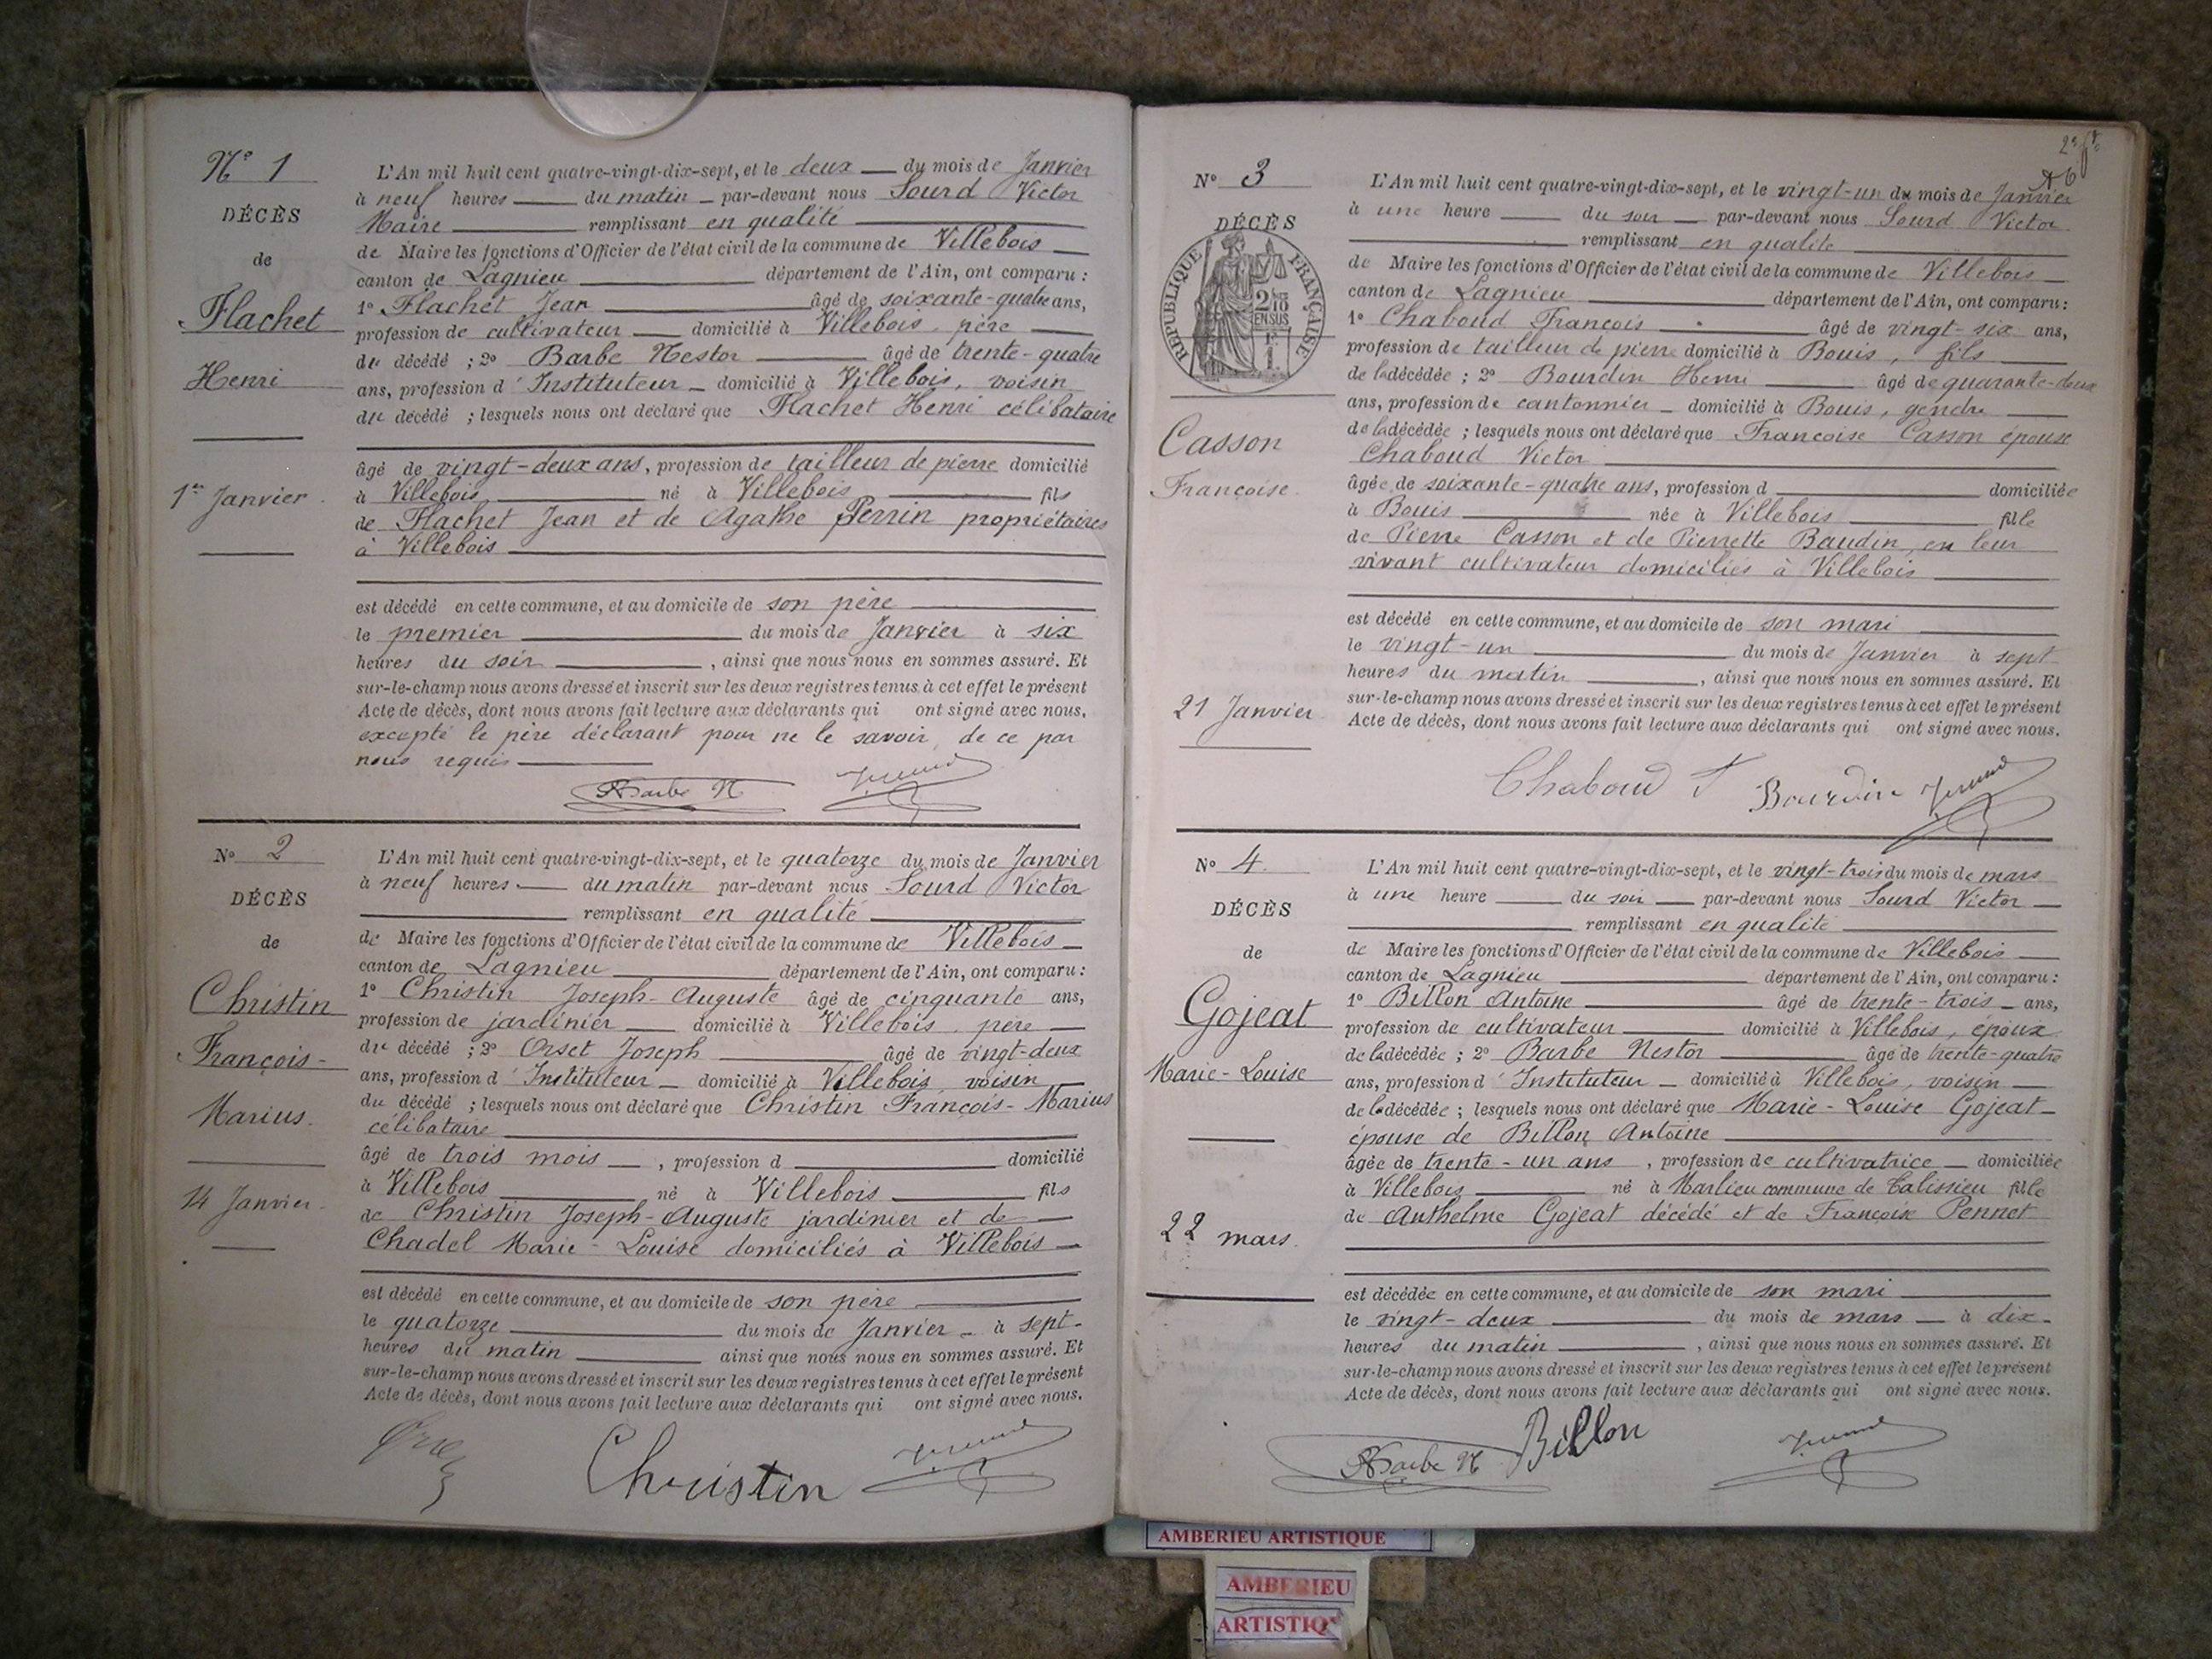 N° 1
DÉCÈS
de
Flachet
Henri
1er Janvier
L'An mil huit cent quatre-vingt-dix-sept, et le deux du mois de Janvier
à neuf heures du matin par-devant nous Sourd Victor
Maire remplissant en qualité
de Maire les fonctions d'Officier de l'état civil de la commune de Villebois
canton de Lagnieu département de l'Ain, ont comparu :
1° Flachet Jean âgé de soixante-quatre ans,
profession de cultivateur domicilié à Villebois, père
du décédé ; 2° Barbe Nestor âgé de trente-quatre
ans, profession d'Instituteur domicilié à Villebois, voisin
du décédé ; lesquels nous ont déclaré que Flachet Henri célibataire
âgé de vingt-deux ans, profession de tailleur de pierre domicilié
à Villebois né à Villebois fils
de Flachet Jean et de Agathe Perrin propriétaires
à Villebois
est décédé en cette commune, et au domicile de son père
le premier du mois de Janvier à six
heures du soir, ainsi que nous nous en sommes assuré. Et
sur-le-champ nous avons dressé et inscrit sur les deux registres tenus à cet effet le présent
Acte de décès, dont nous avons fait lecture aux déclarants qui ont signé avec nous,
excepté le père déclarant pour ne le savoir, de ce par
nous requis
Barbe N
N° 2
DÉCÈS
de
Christin
François-
Marius.
14 Janvier
L'An mil huit cent quatre-vingt-dix-sept, et le quatorze du mois de Janvier
à neuf heures du matin par-devant nous Sourd Victor
remplissant en qualité
de Maire les fonctions d'Officier de l'état civil de la commune de Villebois
canton de Lagnieu département de l'Ain, ont comparu :
1° Christin Joseph-Auguste âgé de cinquante ans,
profession de jardinier domicilié à Villebois, père
du décédé ; 2° Orset Joseph âgé de vingt-deux
ans, profession d'Instituteur domicilié à Villebois, voisin
du décédé ; lesquels nous ont déclaré que Christin François-Marius
célibataire
âgé de trois mois, profession d domicilié
à Villebois né à Villebois fils
de Christin Joseph-Auguste jardinier et de
Chadel Marie-Louise domiciliés à Villebois
est décédé en cette commune, et au domicile de son père
le quatorze du mois de Janvier à sept
heures du matin ainsi que nous nous en sommes assuré. Et
sur-le-champ nous avons dressé et inscrit sur les deux registres tenus à cet effet le présent
Acte de décès, dont nous avons fait lecture aux déclarants qui ont signé avec nous.
Christin
N° 3
DÉCÈS
RÉPUBLIQUE FRANÇAISE
2/10
EN SUS
Casson
Françoise.
21 Janvier
L'An mil huit cent quatre-vingt-dix-sept, et le vingt-un du mois de Janvier
à une heure du soir par-devant nous Sourd Victor
remplissant en qualité
de Maire les fonctions d'Officier de l'état civil de la commune de Villebois
canton de Lagnieu département de l'Ain, ont comparu :
1° Chaboud François âgé de vingt-six ans,
profession de tailleur de pierre domicilié à Bouis, fils
de la décédée ; 2° Bourdin Henri âgé de quarante-deux
ans, profession de cantonnier domicilié à Bouis, gendre
de la décédée ; lesquels nous ont déclaré que Françoise Casson épouse
Chaboud Victor
âgée de soixante-quatre ans, profession d domiciliée
à Bouis née à Villebois fille
de Pierre Casson et de Pierrette Baudin, en leur
vivant cultivateur domiciliés à Villebois
est décédé en cette commune, et au domicile de son mari
le vingt-un du mois de Janvier à sept
heures du matin, ainsi que nous nous en sommes assuré. Et
sur-le-champ nous avons dressé et inscrit sur les deux registres tenus à cet effet le présent
Acte de décès, dont nous avons fait lecture aux déclarants qui ont signé avec nous.
Chaboud Bourdin
N° 4.
DÉCÈS
de
Gojeat
Marie-Louise
22 mars.
L'An mil huit cent quatre-vingt-dix-sept, et le vingt-trois du mois de mars
à une heure du soir par-devant nous Sourd Victor
remplissant en qualité
de Maire les fonctions d'Officier de l'état civil de la commune de Villebois
canton de Lagnieu département de l'Ain, ont comparu :
1° Billon Antoine âgé de trente-trois ans,
profession de cultivateur domicilié à Villebois, époux
de la décédée ; 2° Barbe Nestor âgé de trente-quatre
ans, profession d'Instituteur domicilié à Villebois, voisin
de la décédée ; lesquels nous ont déclaré que Marie-Louise Gojeat
épouse de Billon Antoine
âgée de trente-un ans, profession de cultivatrice domiciliée
à Villebois né à Marlieu commune de Talissieu fille
de Anthelme Gojeat décédé et de Françoise Pennet
est décédée en cette commune, et au domicile de son mari
le vingt-deux du mois de mars à dix
heures du matin, ainsi que nous nous en sommes assuré. Et
sur-le-champ nous avons dressé et inscrit sur les deux registres tenus à cet effet le présent
Acte de décès, dont nous avons fait lecture aux déclarants qui ont signé avec nous.
Barbe N Billon
AMBERIEU ARTISTIQUE
AMBERIEU
ARTISTIQ